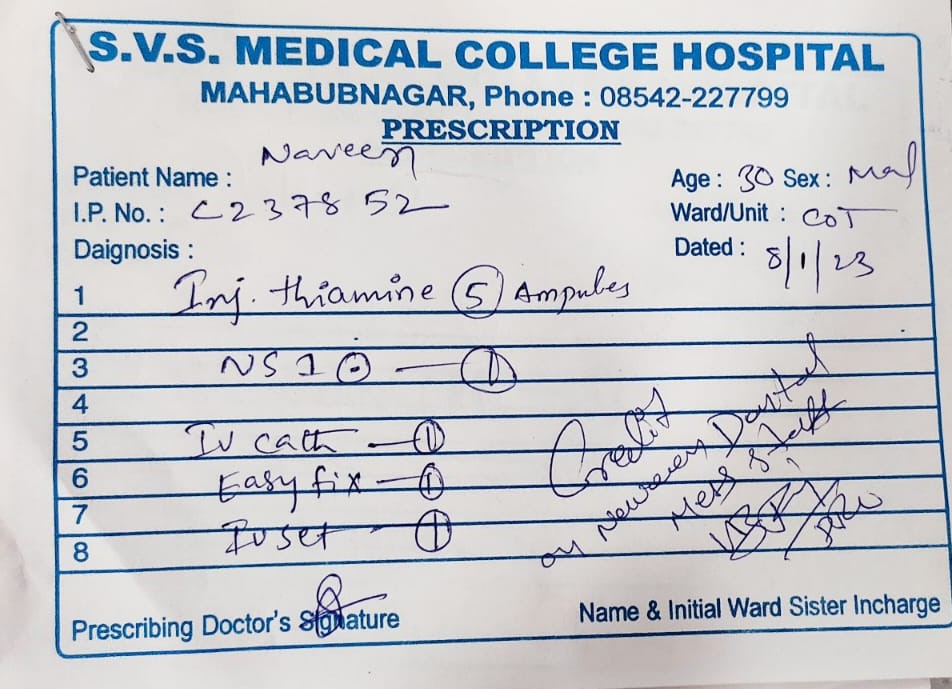 S.V.S. MEDICAL COLLEGE HOSPITAL
MAHABUBNAGAR, Phone : 08542-227799
PRESCRIPTION
Patient Name : Naveen
Age : 30 Sex : Mal
I.P. No. : C237852
Ward/Unit : COT
Daignosis :
Dated : 8/1/23
1 Inj. thiamine 5 Ampules
2
3 NS 1 1
4
5 IV cath — 1
6 Easy fix — 1
7
8 IV set - 1
Credit
on Dental
Mess staff
Prescribing Doctor's Signature
Name & Initial Ward Sister Incharge